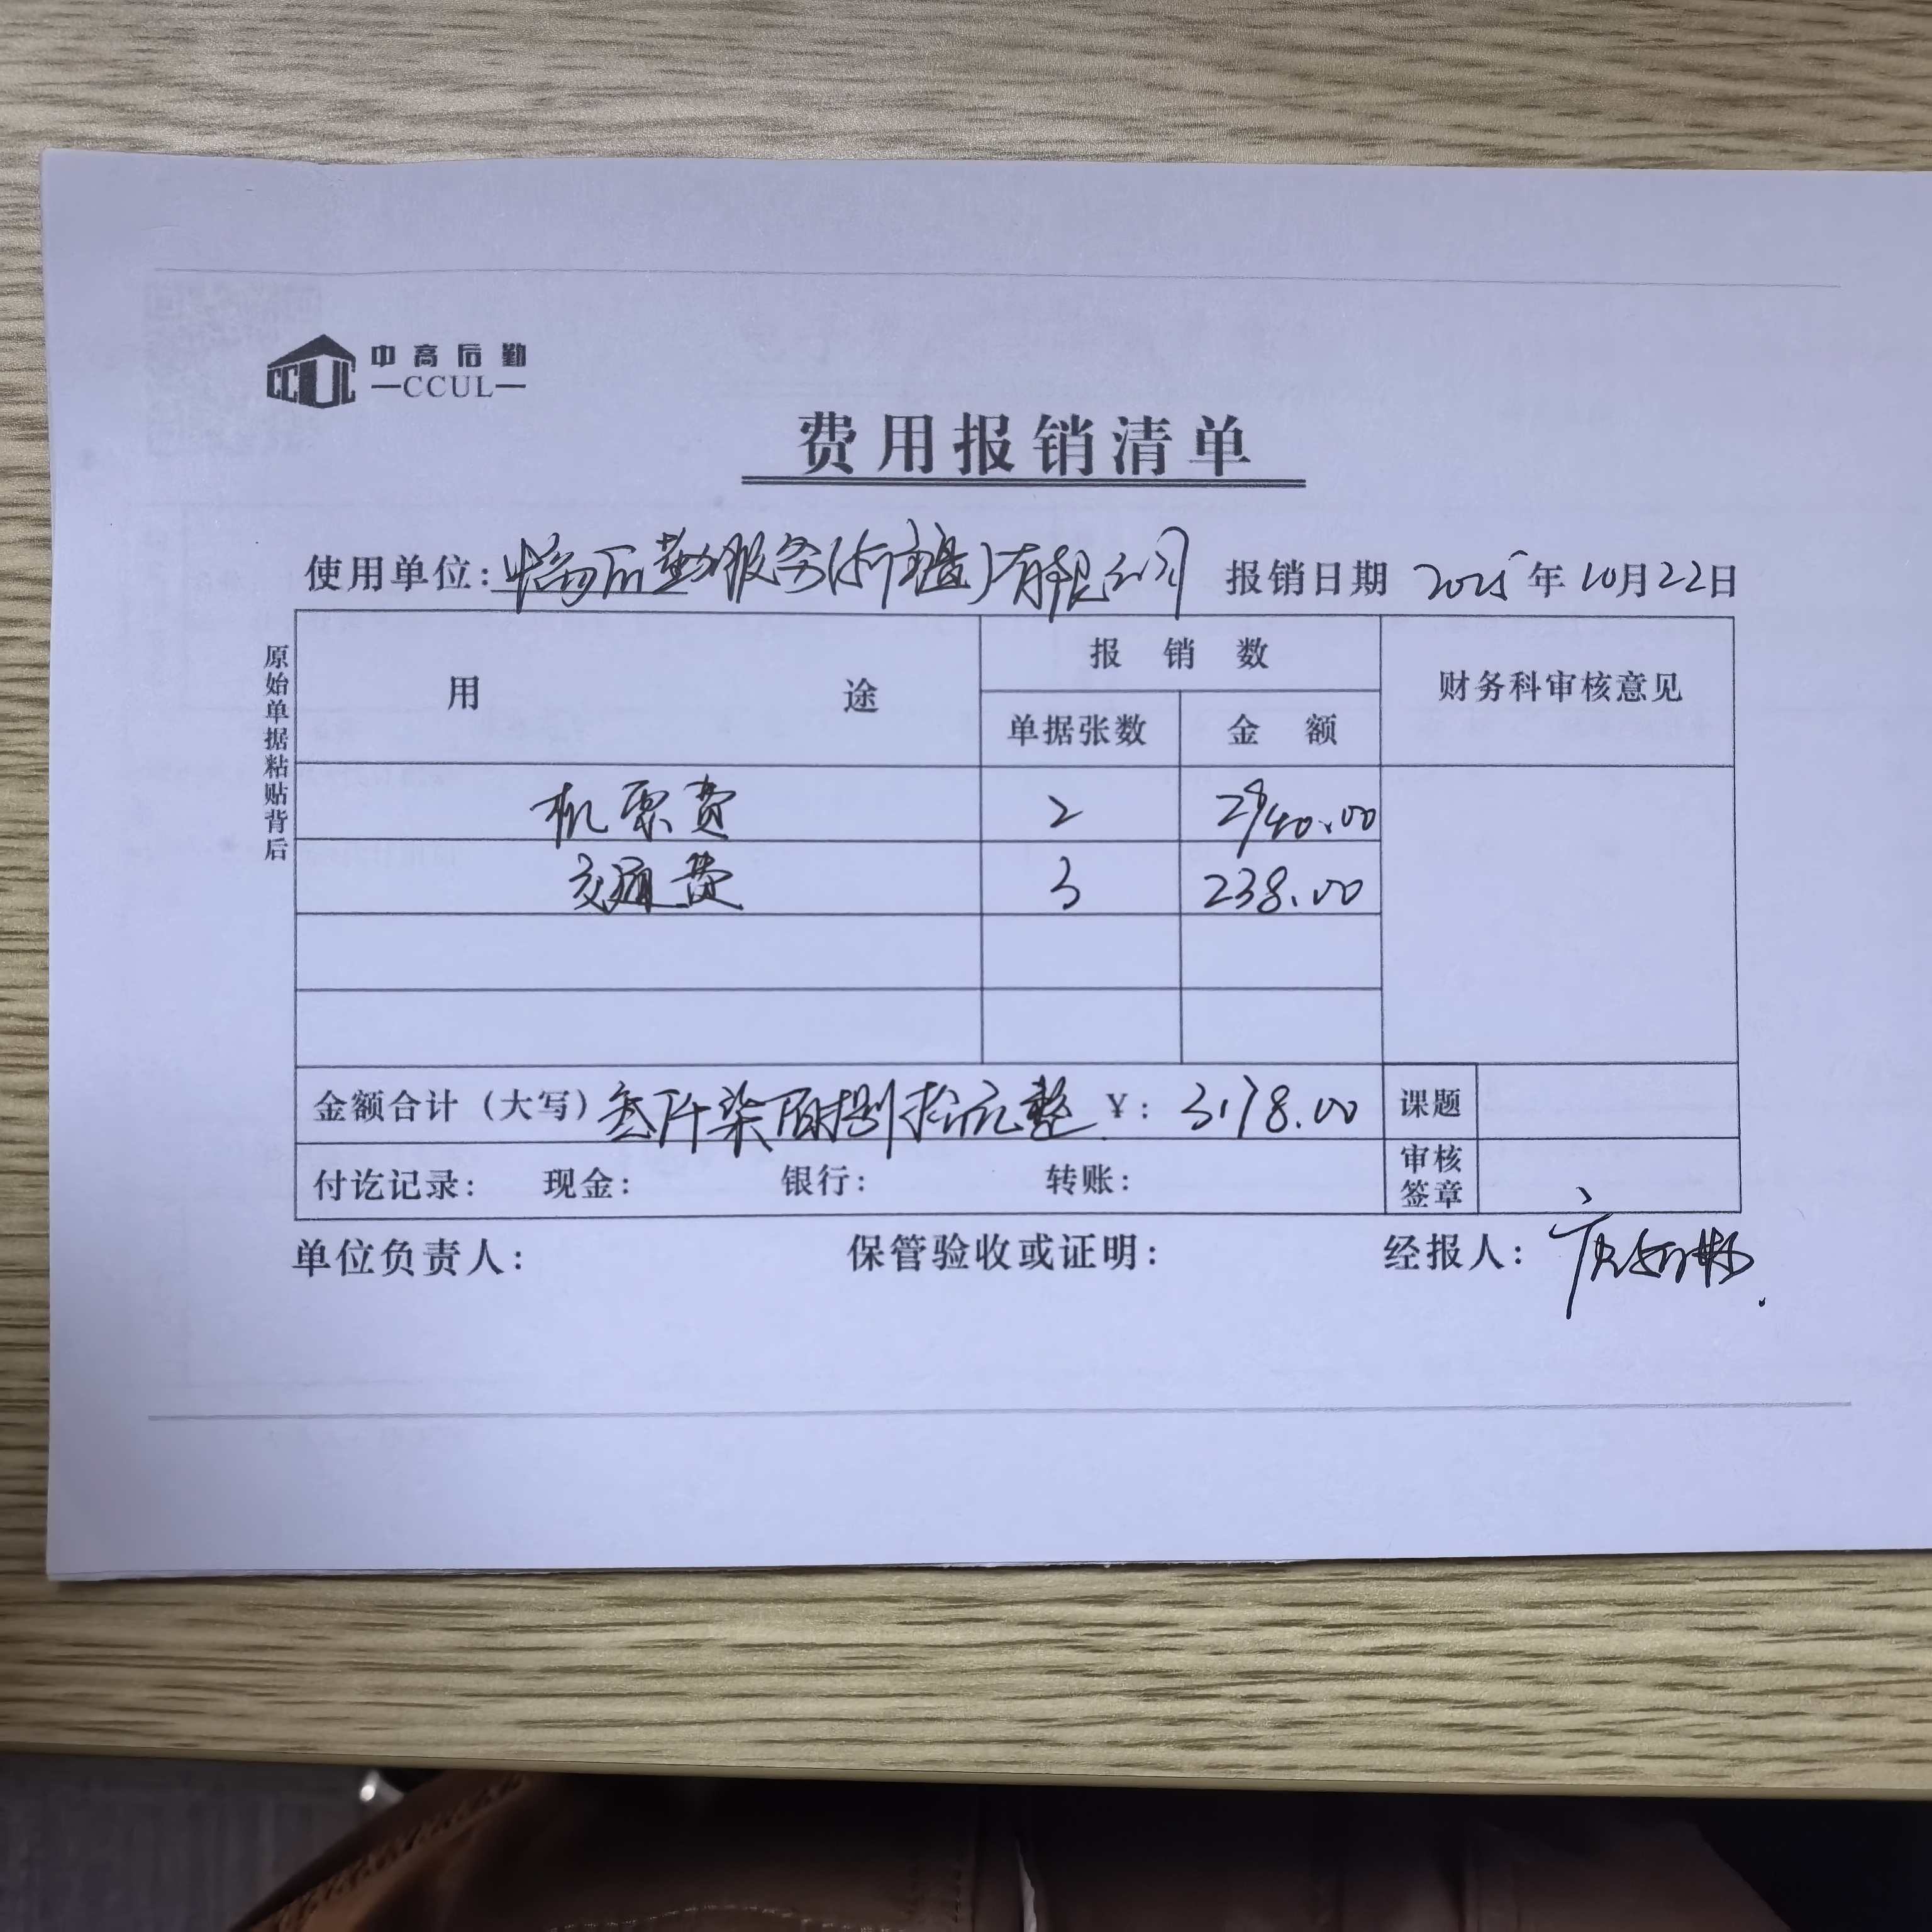 中高后勤
CCUL
—CCUL—
费用报销清单
使用单位:中高后勤服务()有限公司 报销日期 2025年10月22日
原始单据粘贴背后
用途 报销数 财务科审核意见
单据张数 金额
机票费 2 2940.00
交通费 3 238.00
金额合计(大写)叁仟柒佰捌拾元整 ¥: 3178.00 课题
付讫记录: 现金: 银行: 转账: 审核签章
单位负责人: 保管验收或证明: 经报人: